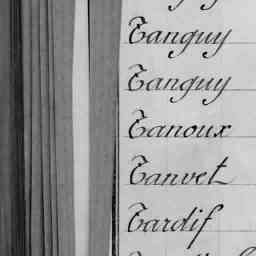 Tanguy
Tanguy
Tanoux
Tanvet
Tardif